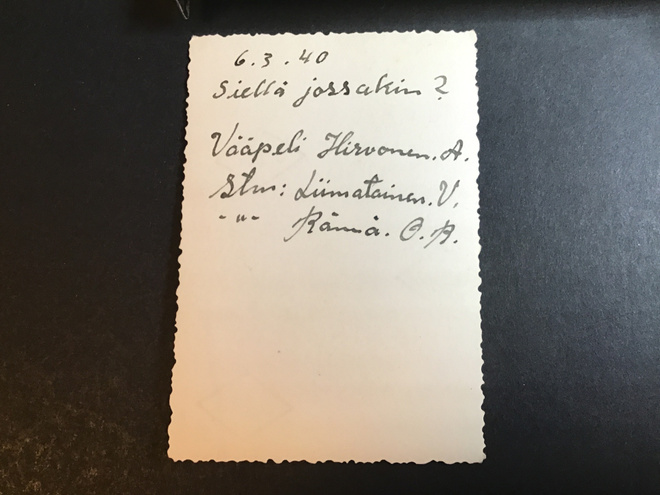 6.3.40
Siellä jossakin?
Vääpeli Hirvonen. A.
Stm: Liimatainen. V.
-"- Rämä. O. R.